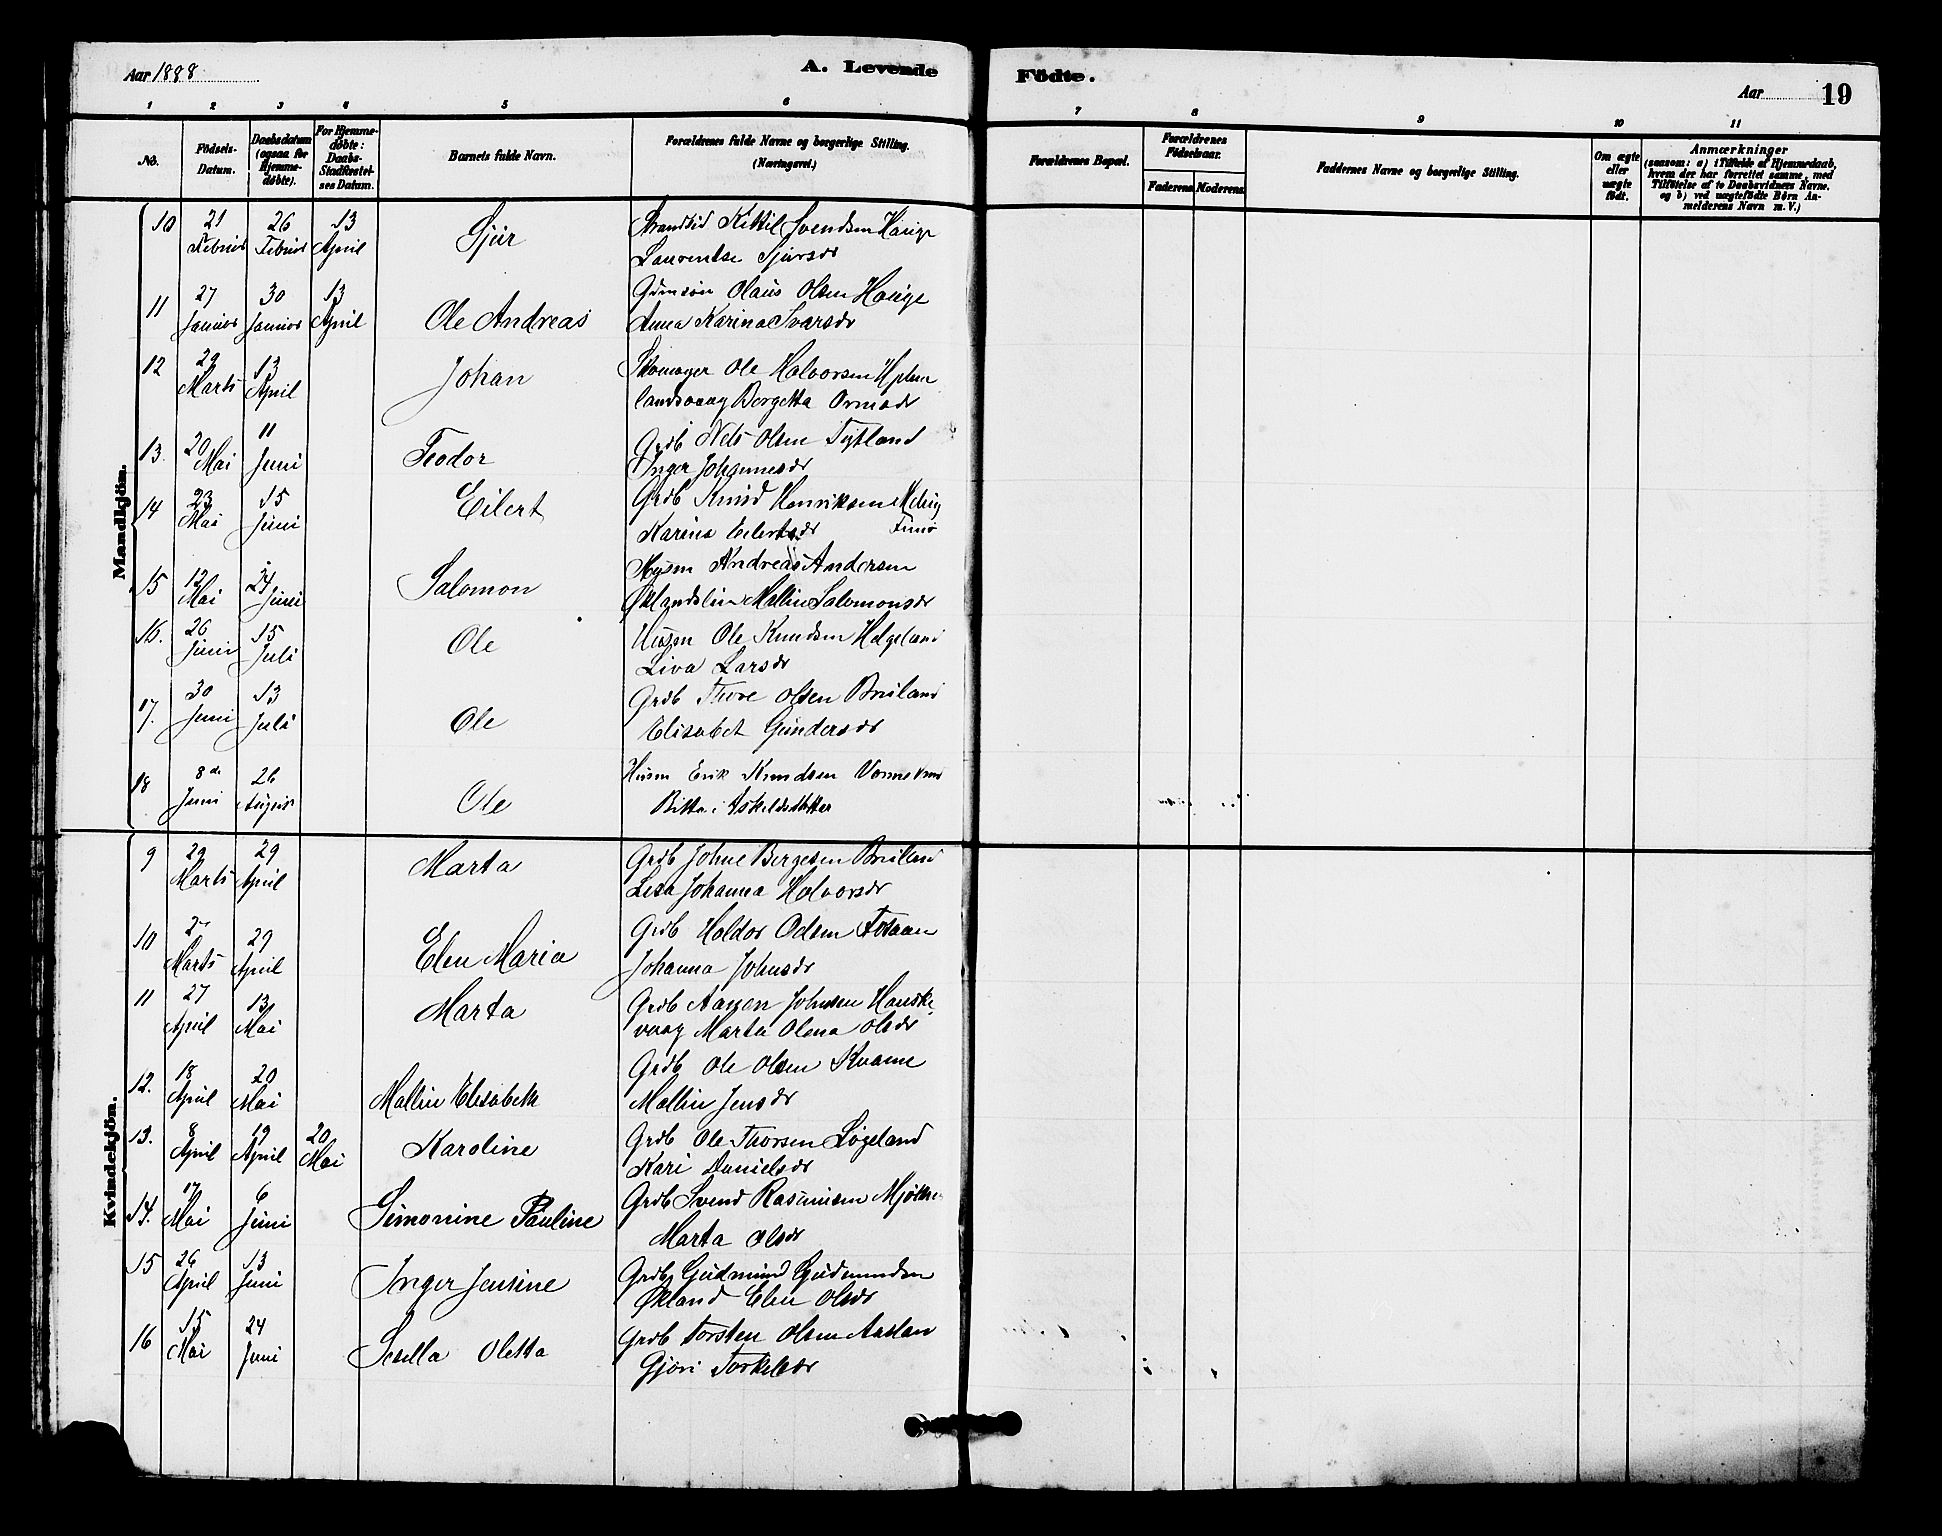 Aar 1888
A. Levende Födte.
Aar 19
1 2 3 4 5 6 7 8 9 10 11
No.
Födsels-Datum.
Daabsdatum (ogsaa for Hjemme-døbte).
For Hjemme-døbte: Daabs-Stadfæstel-ses Datum.
Barnets fulde Navn.
Forældrenes fulde Navne og borgerlige Stilling. (Næringsvei.)
Forældrenes Bopæl.
Forældrenes Fødselsaar.
Faderens. Moderens.
Faddernes Navne og borgerlige Stilling.
Om ægte eller uægte født.
Anmærkninger
(saasom: a) i Tilfælde af Hjemmedaab, hvem der har forrettet samme, med Tilføielse af to Daabsvidners Navne, og b) ved uægtefödte Börn An-melderens Navn m. V.)
Mandkjön.
10 21 Februar 26 Februar 13 April Sjur Strandsid Kittil Svendsen Hauge
Laurentse Sjursdr
11 27 Januar 30 Januar 13 April Ole Andreas Olaus Olsen Hauge
Anna Karina Ivarsdr
12 29 Marts 13 April Johan Skomager Ole Halvorsen Hjelm
landsvaag Bergetta Ormsdr
13. 20 Mai 11 Juni Teodor Grdb Nels Olsen Tytland
Inger Johannesdr
14 23 Mai 15 Juni Eilert Grdb Knud Henriksen
Karina Eilertsdr
15 12 Mai 24 Juni Salomon Husm Andreas Andersen
Mallin Salomonsdr
16. 26 Juni 15 Juli Ole Husm Ole Knudsen Helgeland
Liva Larsdr
17. 30 Juni 13 Juli Ole Grdb Thore Olsen Bruland
Elisabet Gundersdr
18 8de Juni 26 August Ole Husm Erik Knudsen
Askeldsdatter
Kvindekjön.
9 29 Marts 29 April Marta Grdb Johne Bergesen Bruland
Lisa Johanna Halvorsdr
10 Marts 29 April Elen Maria Grdb Haldor Odsen Fosaaen
Johanna Johnsdr
11 27 April 13 Mai Marta Grdb Aagen Johnsen Hauske
vaag Marta Olena Olsdr
12. 18 April 20 Mai Mallin Elisabeth Grdb Ole Olsen Kvame
Mallin Jensdr
13. 8 April 19 April 20 Mai Karoline Grdb Ole Thorsen Løgeland
Kari Danielsdr
14. 17 Mai 6 Juni Simonine Pauline Grdb Svend Rasmusen
Marta Olsdr
15 26 April 13 Juni Inger Jensine Grdb Gudmund Gudmundsen
Økland Elen Olsdr
16 15 Mai 24 Juni Sesella Oletta Grdb Torsten Olsen Aaslan
Gjøri Torkelsdr